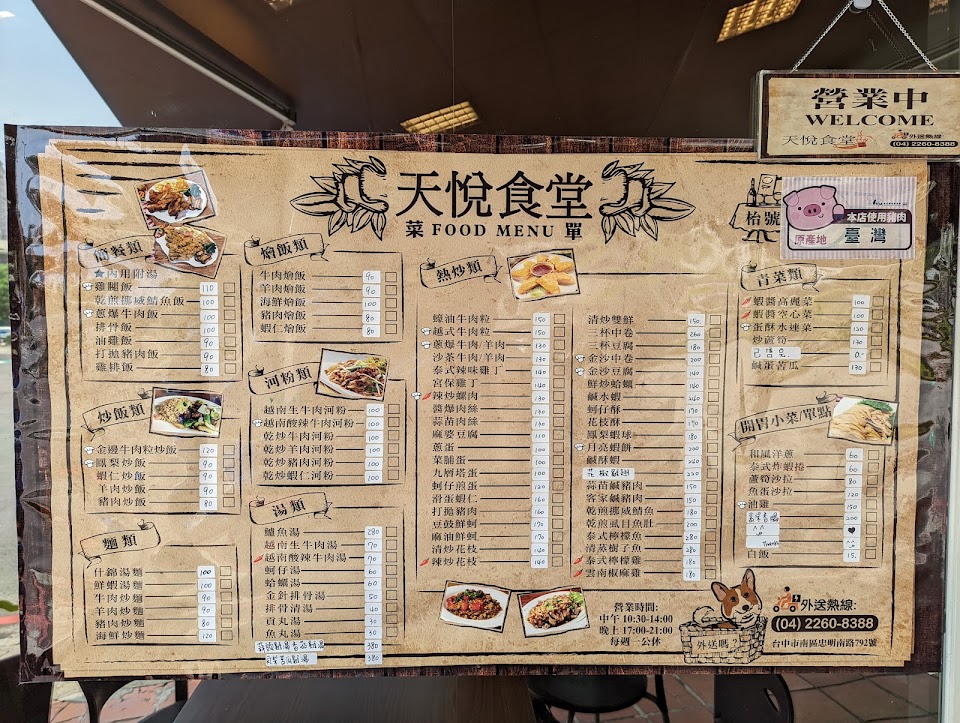 營業中
WELCOME
天悅食堂
外送熱線
(04) 2260-8388
天悅食堂
菜 FOOD MENU 單
枱號
本店使用豬肉
原產地
臺灣
簡餐類
★內用附湯
雞腿飯 110
乾煎挪威鯖魚飯 100
蔥爆牛肉飯 100
排骨飯 100
油雞飯 100
打拋豬肉飯 90
雞排飯 80
炒飯類
金邊牛肉粒炒飯 120
鳳梨炒飯 90
蝦仁炒飯 90
羊肉炒飯 90
豬肉炒飯 80
麵類
什錦湯麵 100
鮮蝦湯麵 100
牛肉炒麵 90
羊肉炒麵 90
豬肉炒麵 80
海鮮炒麵 120
燴飯類
牛肉燴飯 90
羊肉燴飯 90
海鮮燴飯 100
豬肉燴飯 80
蝦仁燴飯 90
河粉類
越南生牛肉河粉 100
越南酸辣牛肉河粉 100
乾炒牛肉河粉 100
乾炒羊肉河粉 100
乾炒豬肉河粉 100
乾炒蝦仁河粉 100
湯類
鱸魚湯 280
越南生牛肉湯 70
越南酸辣牛肉湯 70
蚵仔湯 60
蛤蠣湯 60
金針排骨湯 50
排骨清湯 40
貢丸湯 30
魚丸湯 30
380
380
熱炒類
蠔油牛肉粒 150
越式牛肉粒 150
蔥爆牛肉/羊肉 130
沙茶牛肉/羊肉 130
泰式辣味雞丁 140
宮保雞丁 140
辣炒螺肉 130
醬爆肉絲 130
蒜苗肉絲 130
麻婆豆腐 110
蔥蛋 100
菜脯蛋 100
九層塔蛋 100
蚵仔煎蛋 120
滑蛋蝦仁 160
打拋豬肉 160
豆鼓鮮蚵 170
麻油鮮蚵 170
清炒花枝 140
辣炒花枝 140
清炒雙鮮 150
三杯中卷 260
三杯豆腐 180
金沙中卷 200
金沙豆腐 140
鮮炒蛤蠣 140
鹹水蝦 240
蚵仔酥 170
花枝酥 170
鳳梨蝦球 180
月亮蝦餅 240
鹹酥蝦 240
花椒雞翅 220
蒜苗鹹豬肉 150
客家鹹豬肉 150
乾煎挪威鯖魚 180
乾煎虱目魚肚 200
泰式檸檬魚 280
清蒸樹子魚 280
泰式檸檬雞 180
雲南椒麻雞 180
青菜類
蝦醬高麗菜 100
蝦醬空心菜 100
蛋酥水蓮菜 120
炒蘆筍 130
已售完 0.-
鹹蛋苦瓜 130
開胃小菜/單點
和風洋蔥 60
泰式炸蝦捲 60
蘆筍沙拉 80
魚蛋沙拉 120
油雞 150
200
白飯 15.
營業時間:
中午 10:30-14:00
晚上 17:00-21:00
每週一公休
外送嗎?
外送熱線:
(04) 2260-8388
台中市南區忠明南路792號